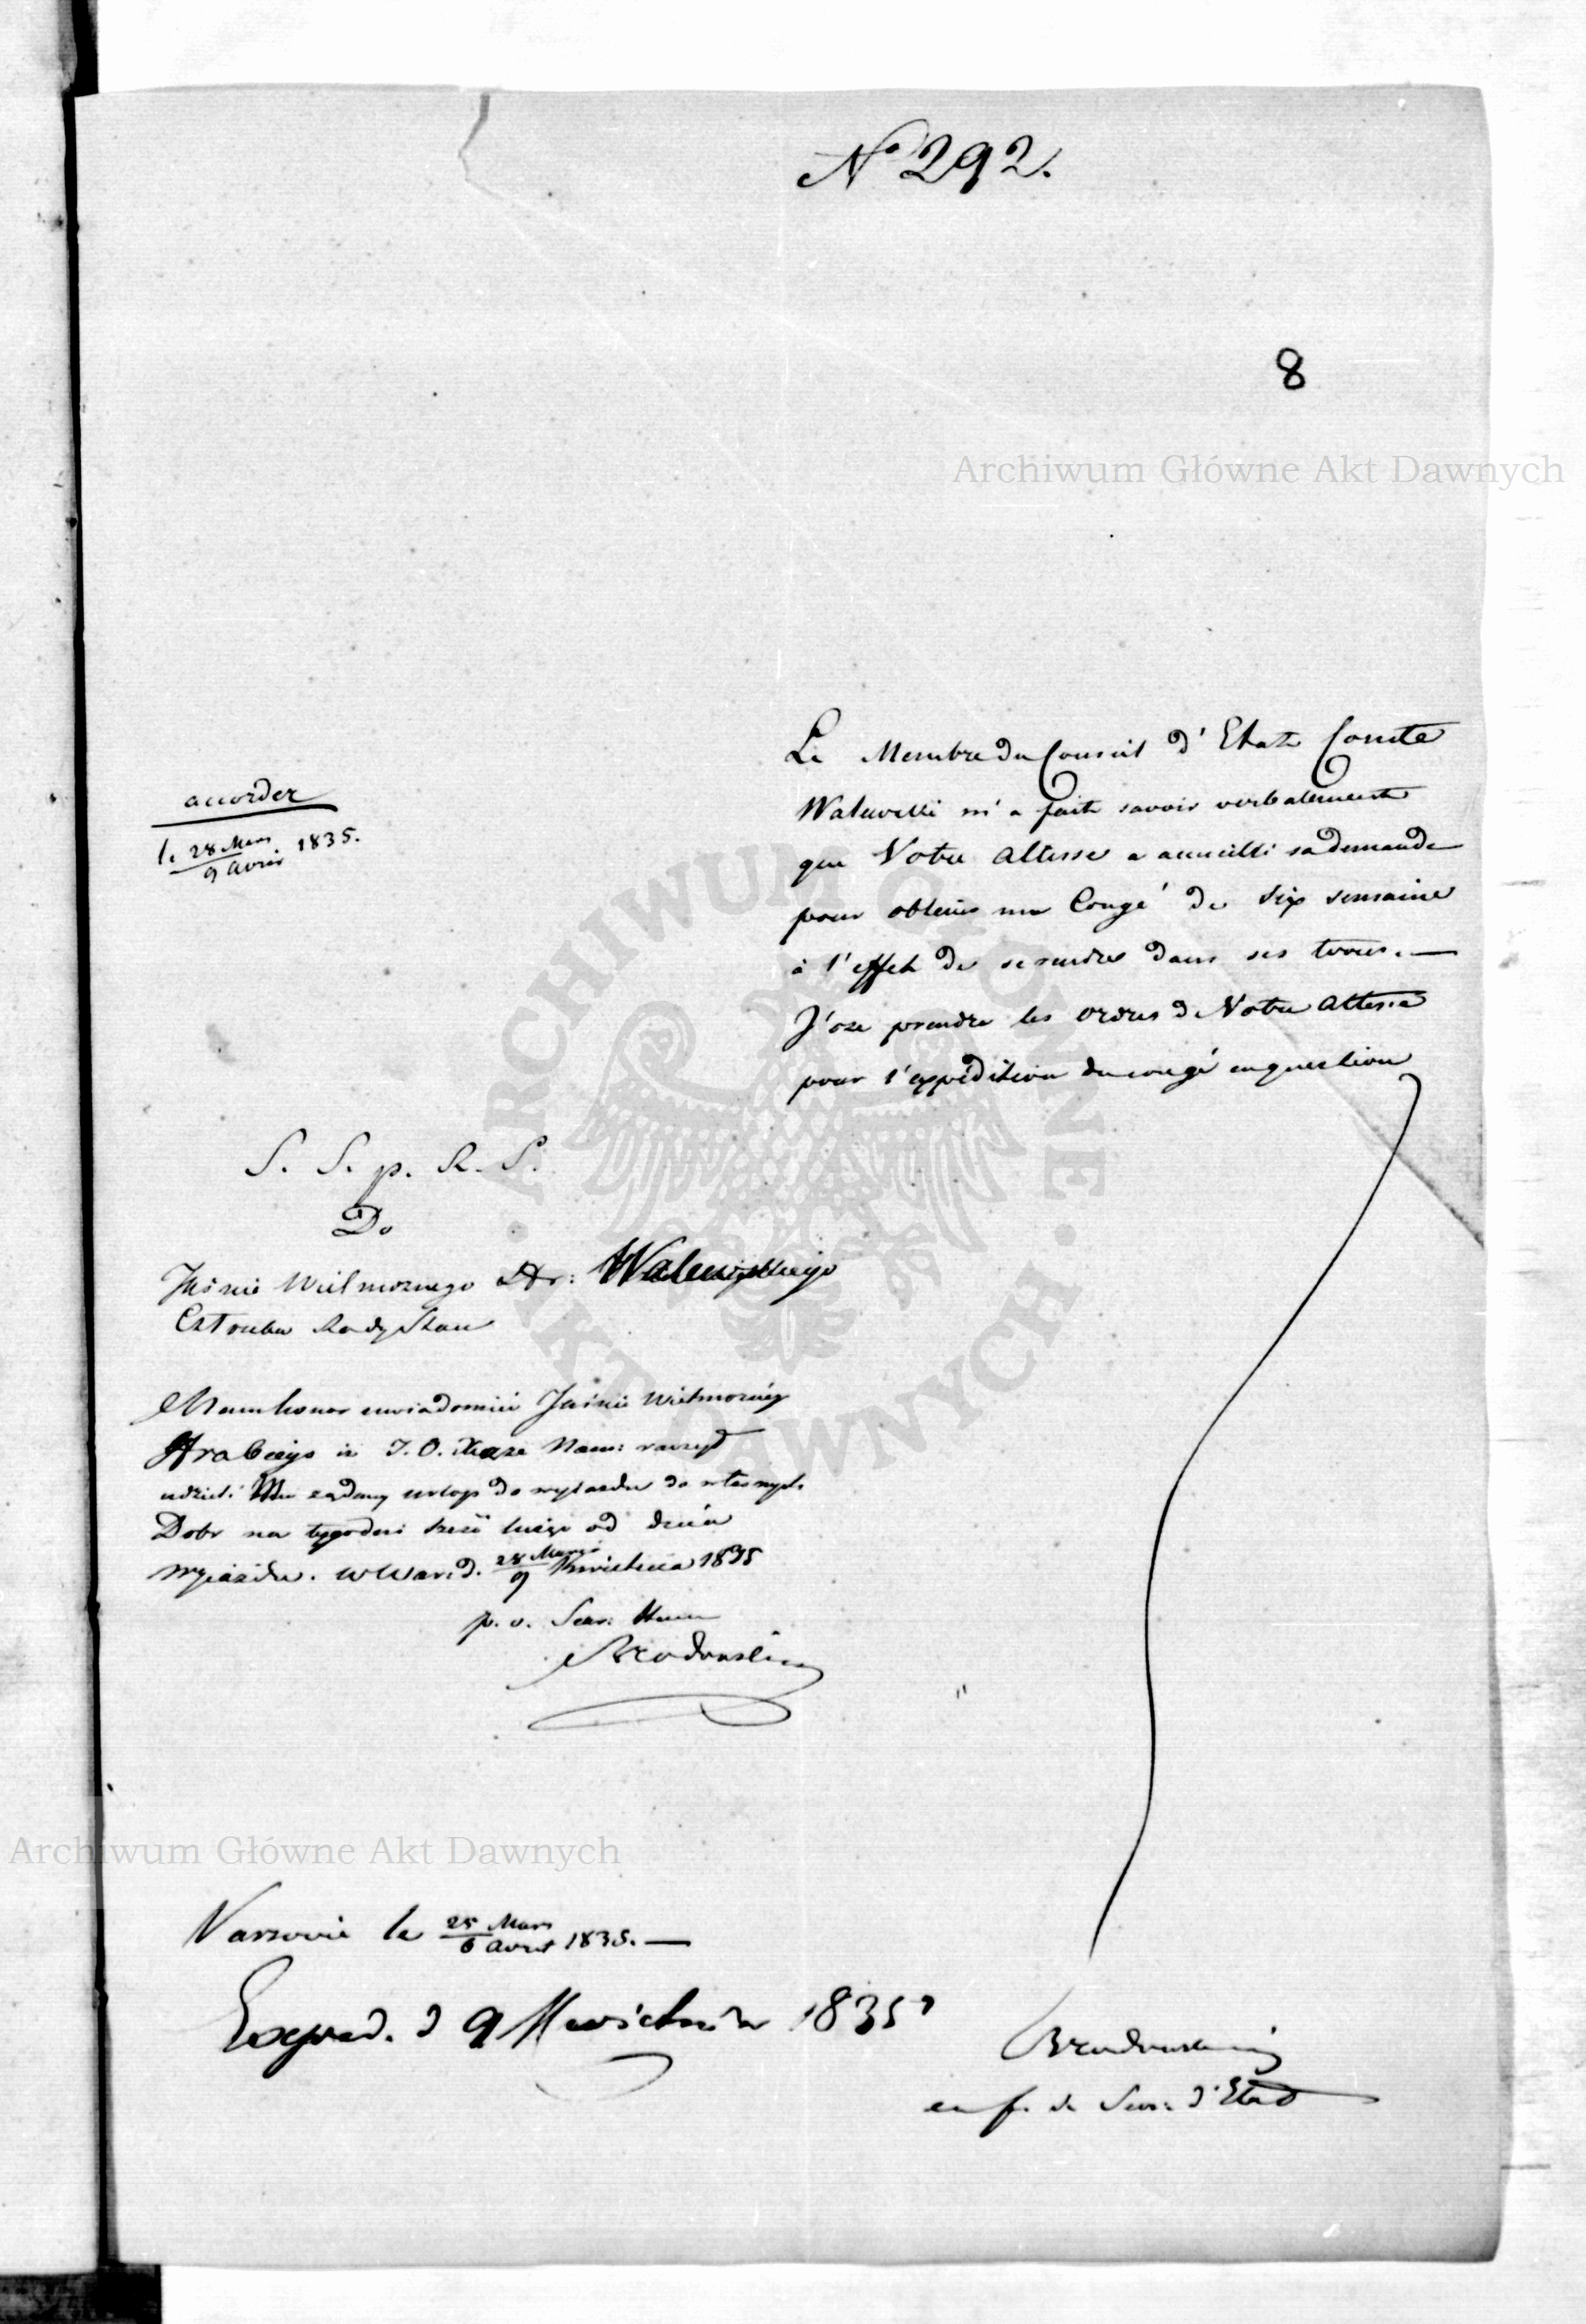 N° 292.
8
Archiwum Główne Akt Dawnych
Le Membre du Conseil d'Etat Comte
Walewski m'a fait savoir verbalement
que Votre Altesse a accueilli sa demande
pour obtenir un Congé de Six semaine
à l'effet de se rendre dans ses terres. —
J'ose prendre les ordres de Votre Altesse
pour l'expédition du congé en question
accorder
le 28 Mars / 9 Avril 1835.
S. S. p. R. S.
Do
Jaśnie Wielmożnego Hr: Walewskiego
Członka Rady Stanu
Mam honor uwiadomić Jaśnie Wielmożnego
Hrabiego iż J. O. Xiąże Nam: raczył
udzielić Mu żądany urlop do wyjazdu do własnych
Dobr na tygodni sześć licząc od dnia
wyjazdu. w War: d. 28 Marca / 9 Kwietnia 1835
p. o. Sekr: Stanu
Brodowski
Varsovie le 25 Mars / 6 Avril 1835. —
Exped. d 9 Kwietnia 1835
Brodowski
en f. de Secr: d'Etat
Archiwum Główne Akt Dawnych
ARCHIWUM GŁÓWNE · AKT DAWNYCH ·